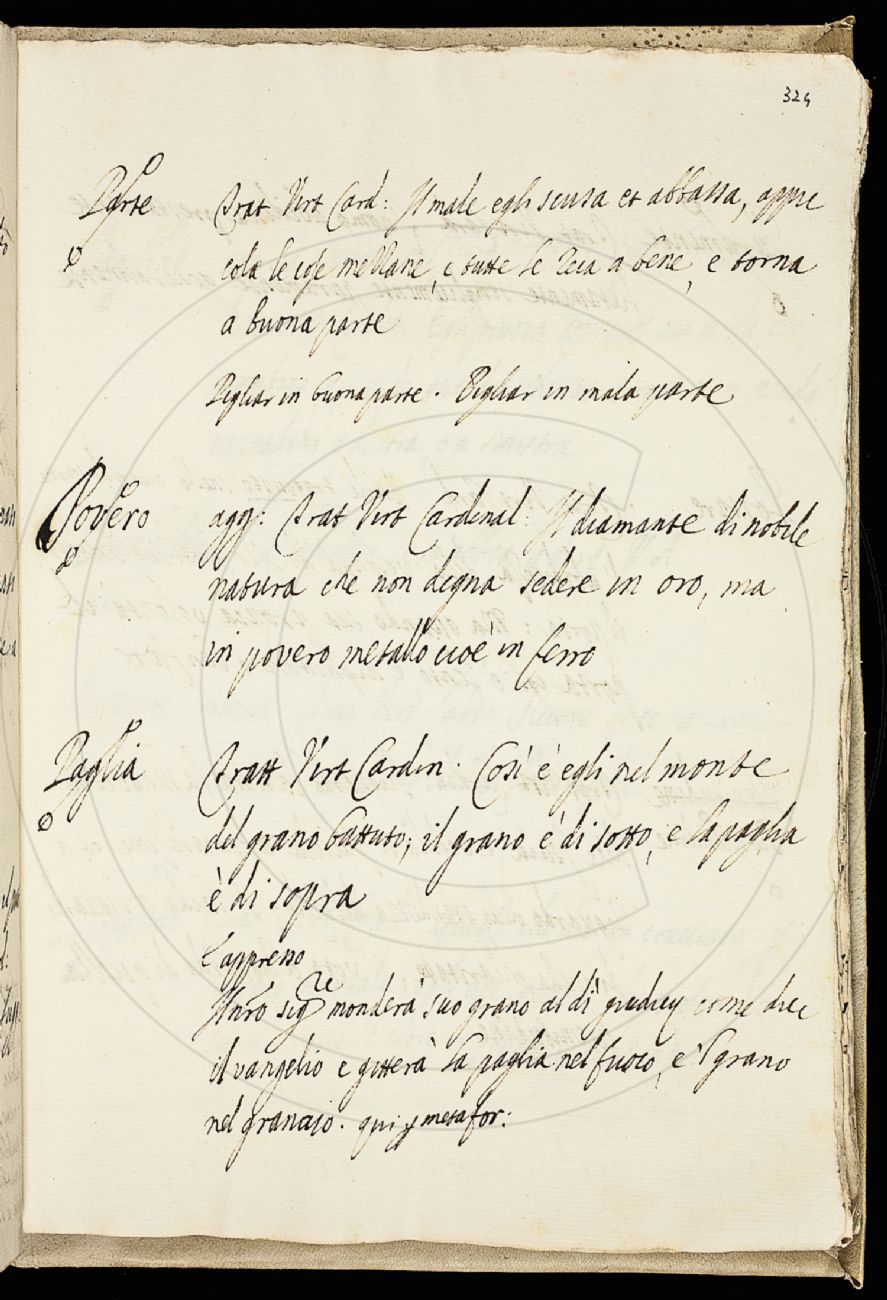 324
Parte
Trat Virt Card: Il male egli scusa et abbassa, appic
cola le cose mezzane, e tutte le reca a bene, e torna
a buona parte
Pigliar in buona parte. Pigliar in mala parte
Povero
agg: Trat Virt Cardinal: Il diamante di nobile
natura che non degna sedere in oro, ma
in povero metallo cioè in ferro
Paglia
Tratt Virt Cardin. Così è egli nel monte
del grano battuto; il grano è di sotto, e la paglia
è di sopra
E appresso
Il nro sigre monderà suo grano al dì giudicy come dice
il vangelio e gitterà la paglia nel fuoco, e 'l grano
nel granaio. qui p metafor: